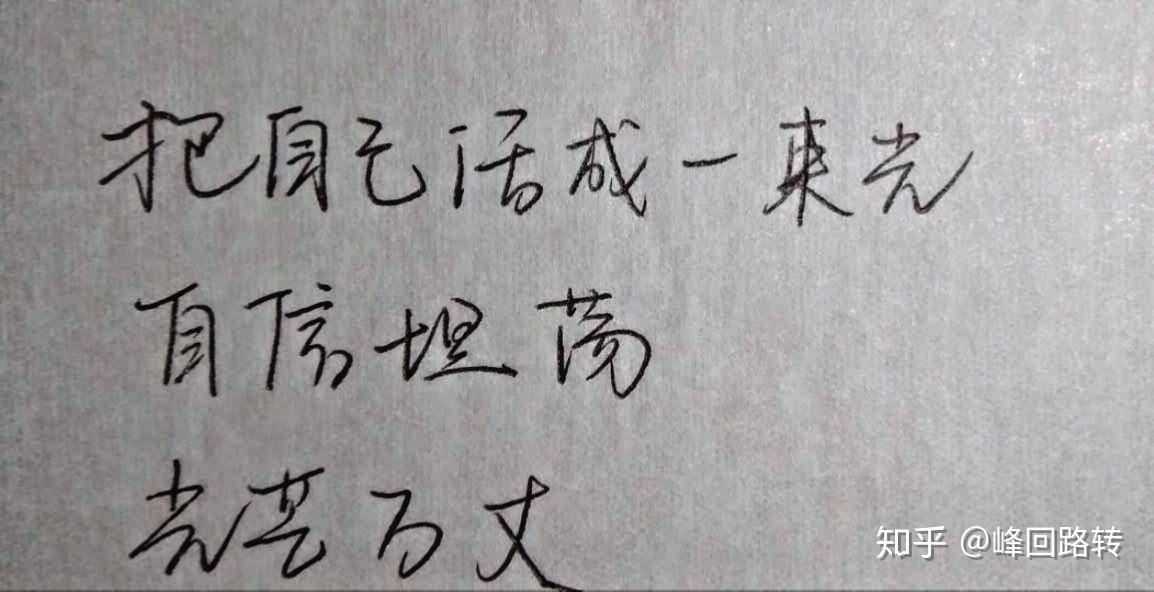 把自己活成一束光
自信坦荡
光芒万丈
知乎 @峰回路转